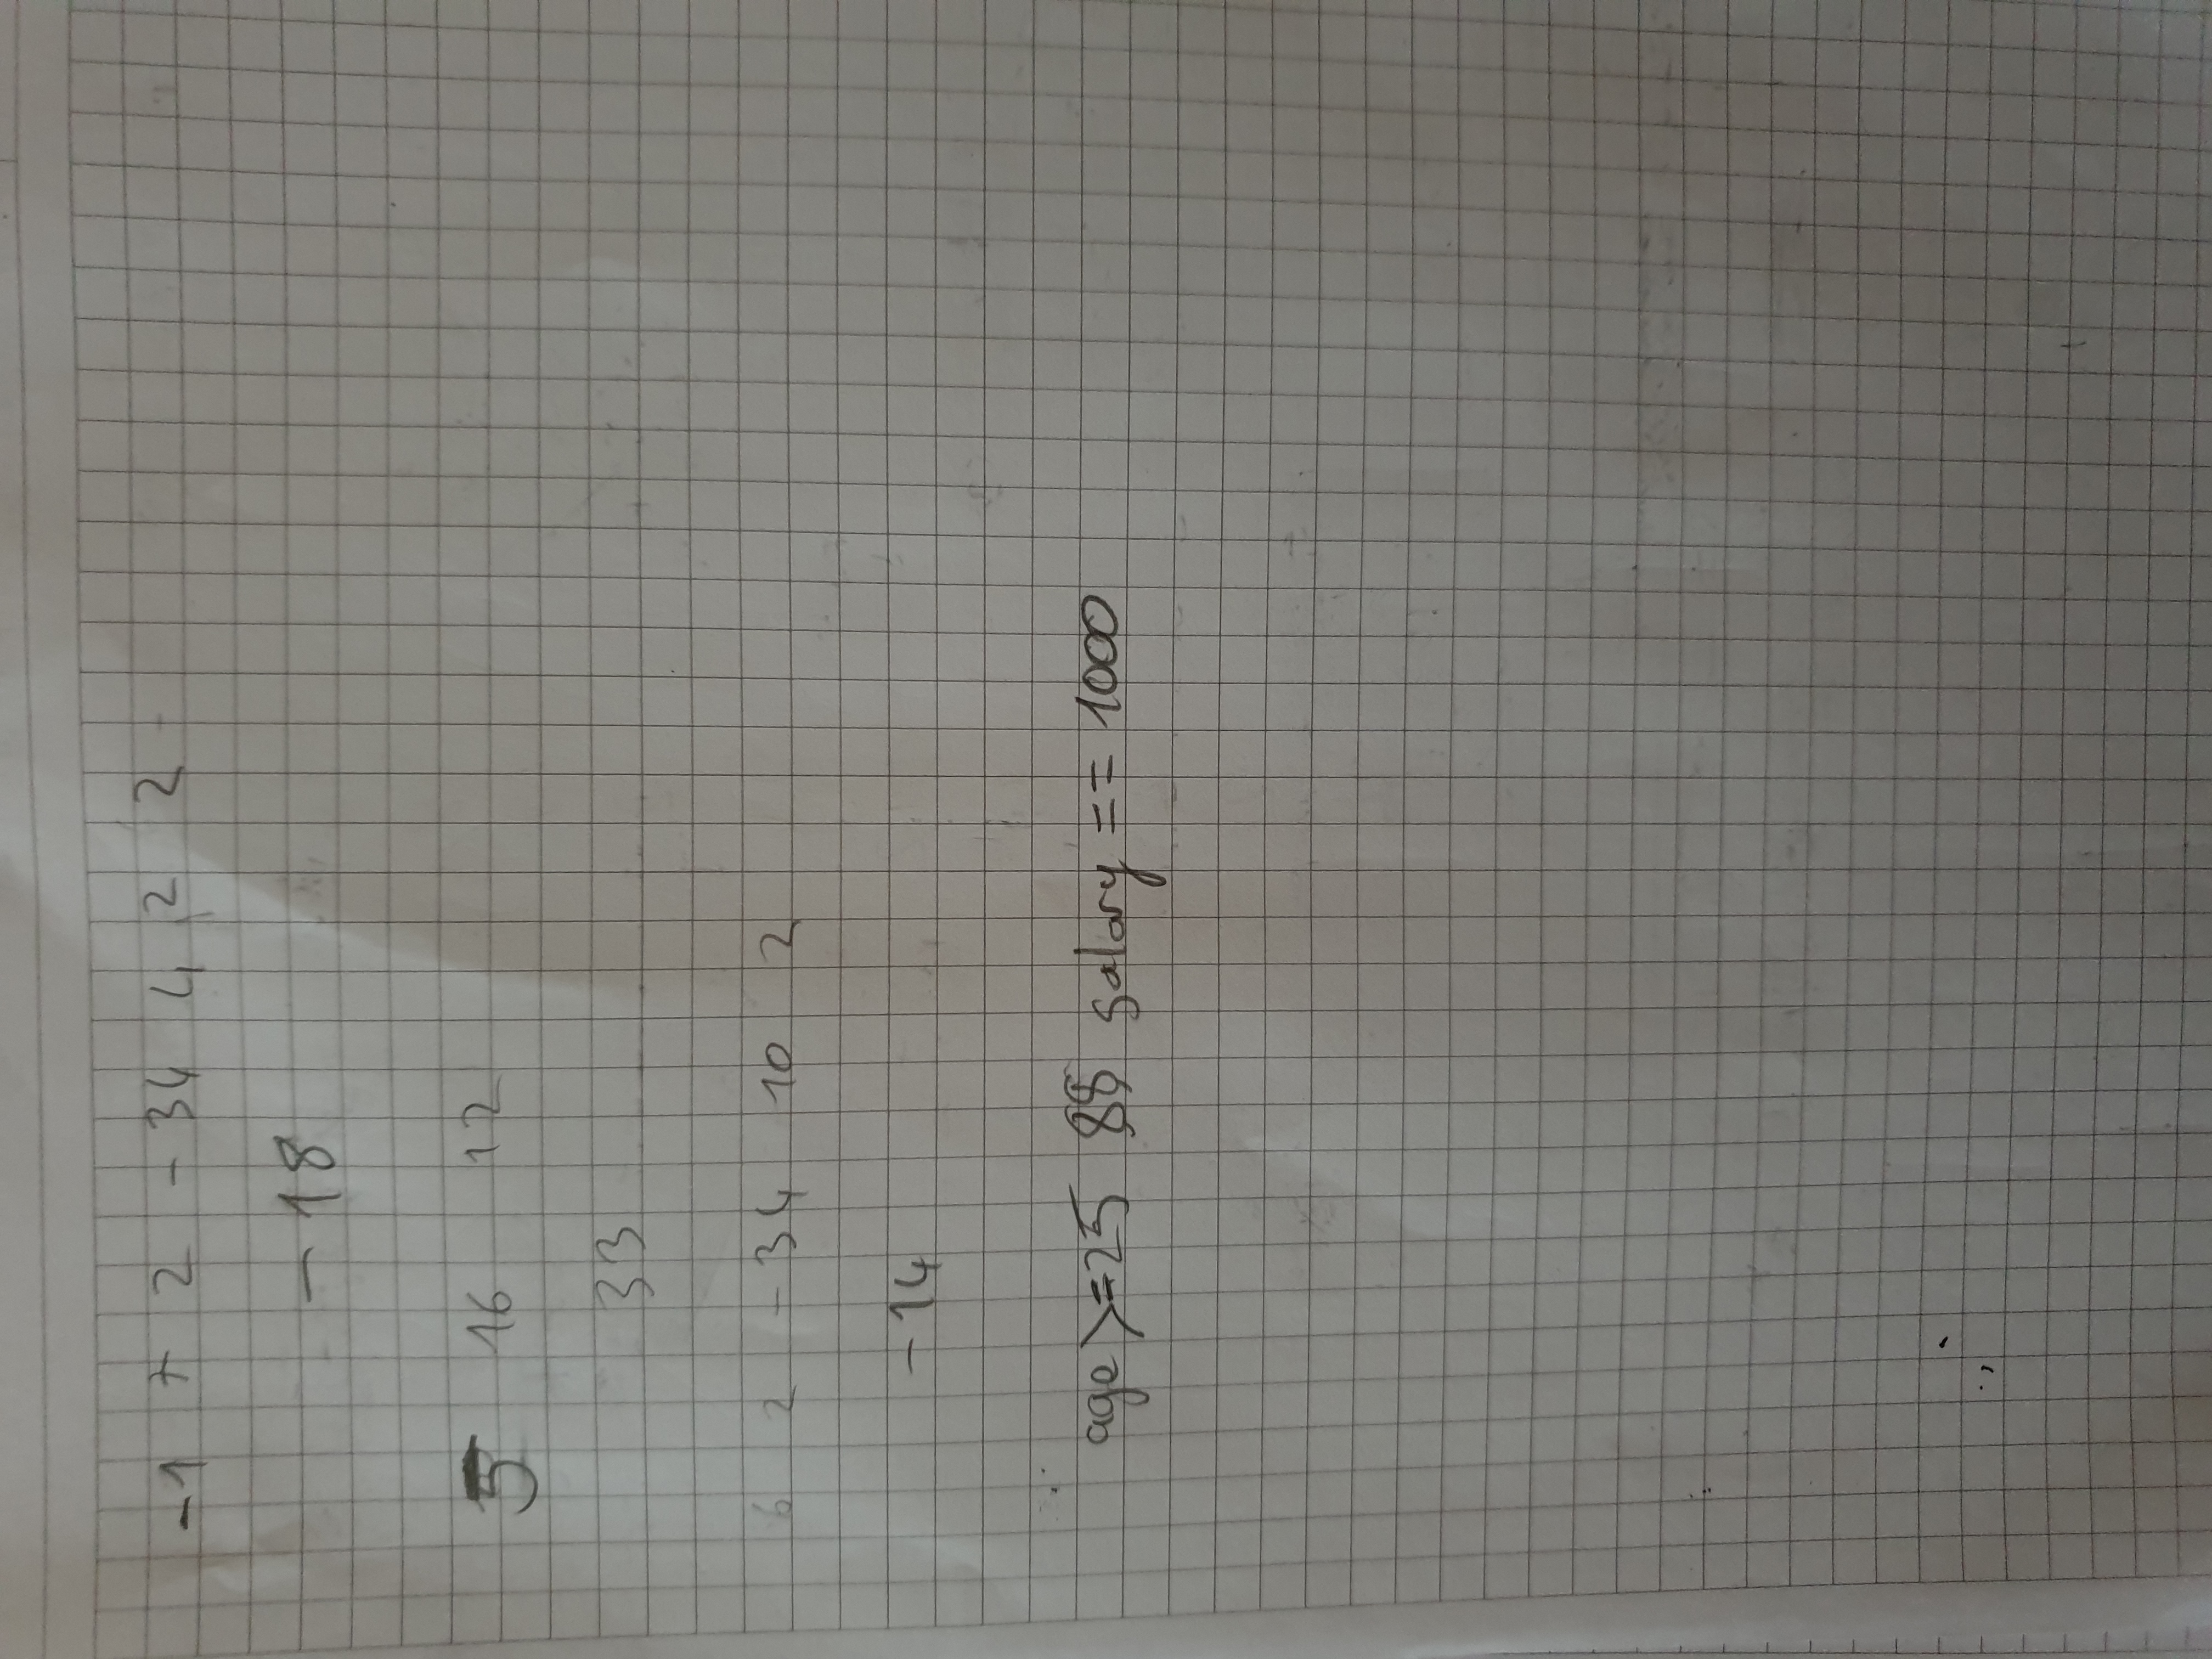 -1 + 2 - 34 4 2 2
-18
5 16 12
33
6 2 -34 10 2
-14
age >=25 && salary == 1000